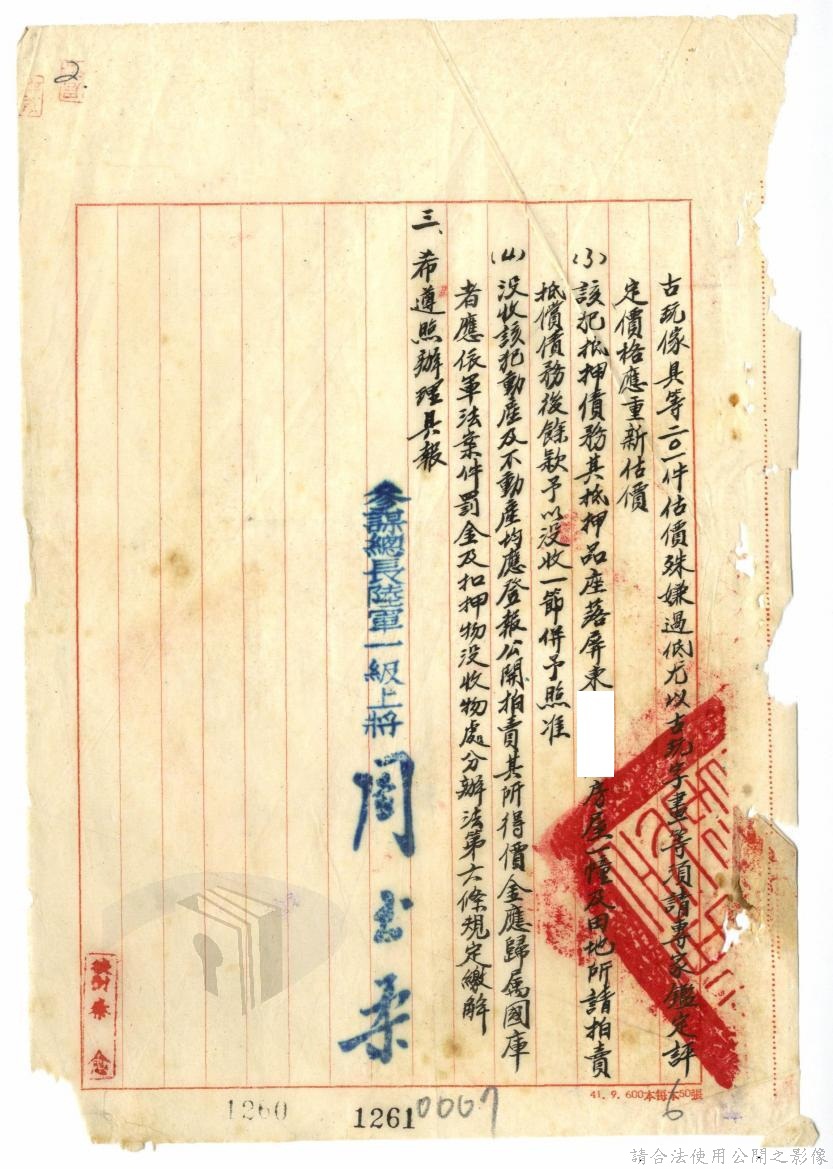 2.
古玩傢具等二〇一件估價殊嫌過低尤以古玩字畫等項請專家鑑定評
定價格應重新估價
(3)該犯抵押債務其抵押品座落屏東
房屋一幢及田地所請拍賣
抵償債務後餘款予以沒收一節併予照准
(4)沒收該犯動產及不動產均應登報公開拍賣其所得價金應歸屬國庫
者應依軍法案件罰金及扣押物沒收物處分辦法第六條規定繳解
三、希遵照辦理具報
參謀總長陸軍一級上將
周至柔
41. 9. 600本每本50張
6
1260
1261
0007
請合法使用公開之影像